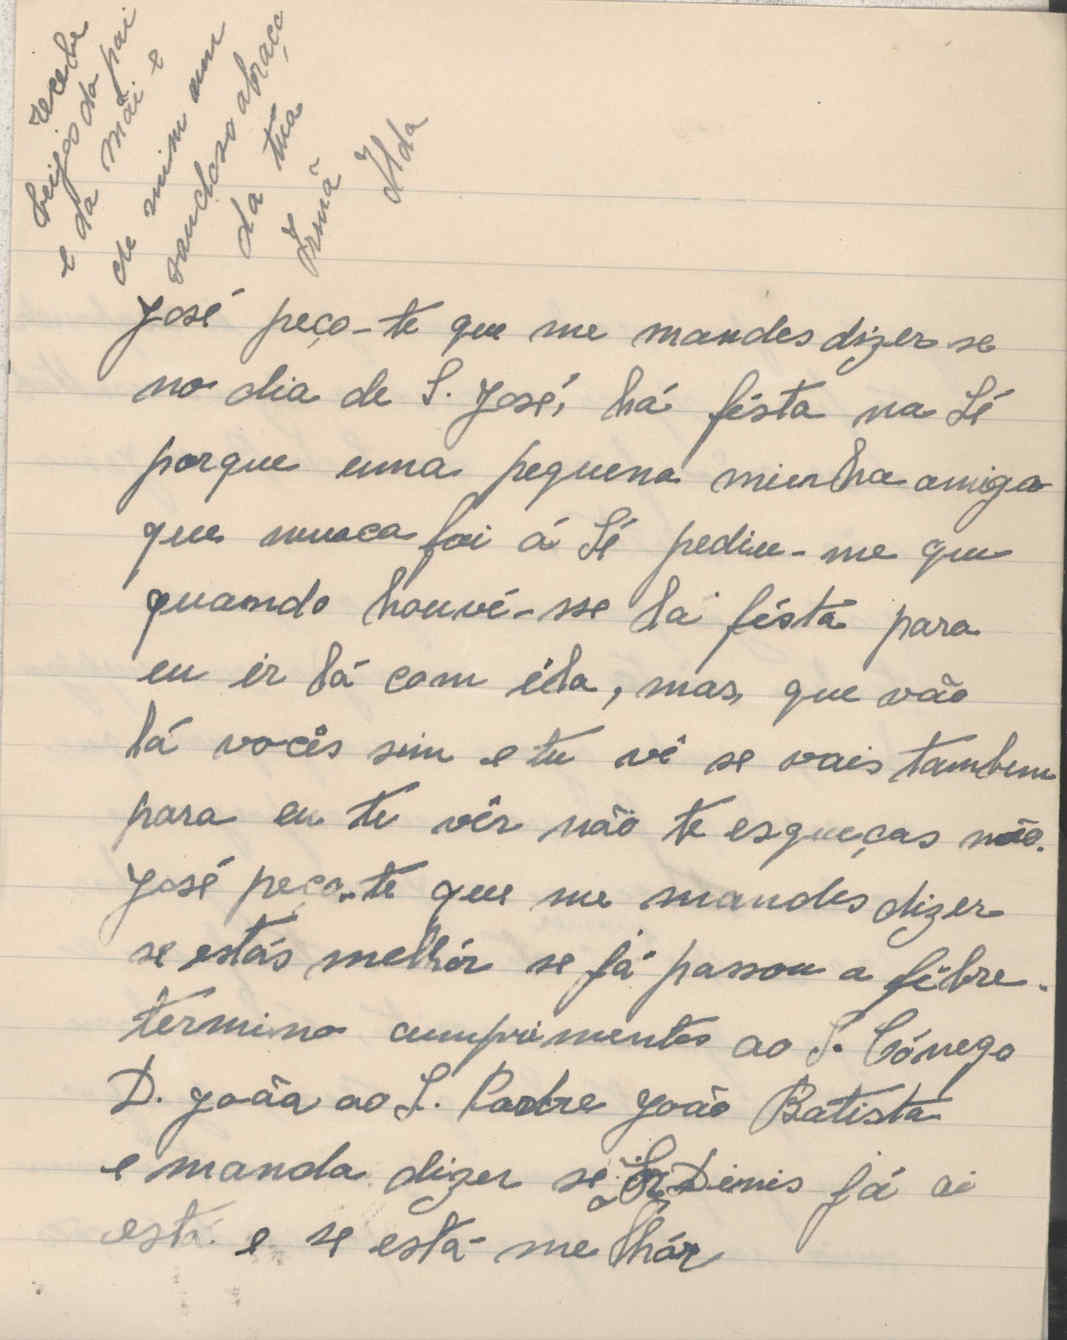 José peço-te que me mandes dizer se
no dia de S. José, há fésta na Sé
porque uma pequena minha amiga
que nunca foi á Sé pediu-me que
quando houvé-sse lá fésta para
eu ir lá com éla, mas, que vão
lá vocês sim e tu vê se vais tambem
para eu te vêr não te esqueças não.
José peço-te que me mandes dizer
se estás melhór se já passou a fébre.
termino cumprimentos ao S. Cónego
D. João ao S. Padre João Batista
e manda dizer se o Sr. Dinis já ai
está e se está melhór
recebe
beijos do pai
e da mãi e
de mim um
saudoso abraço
da tua
Irmã
Ilda